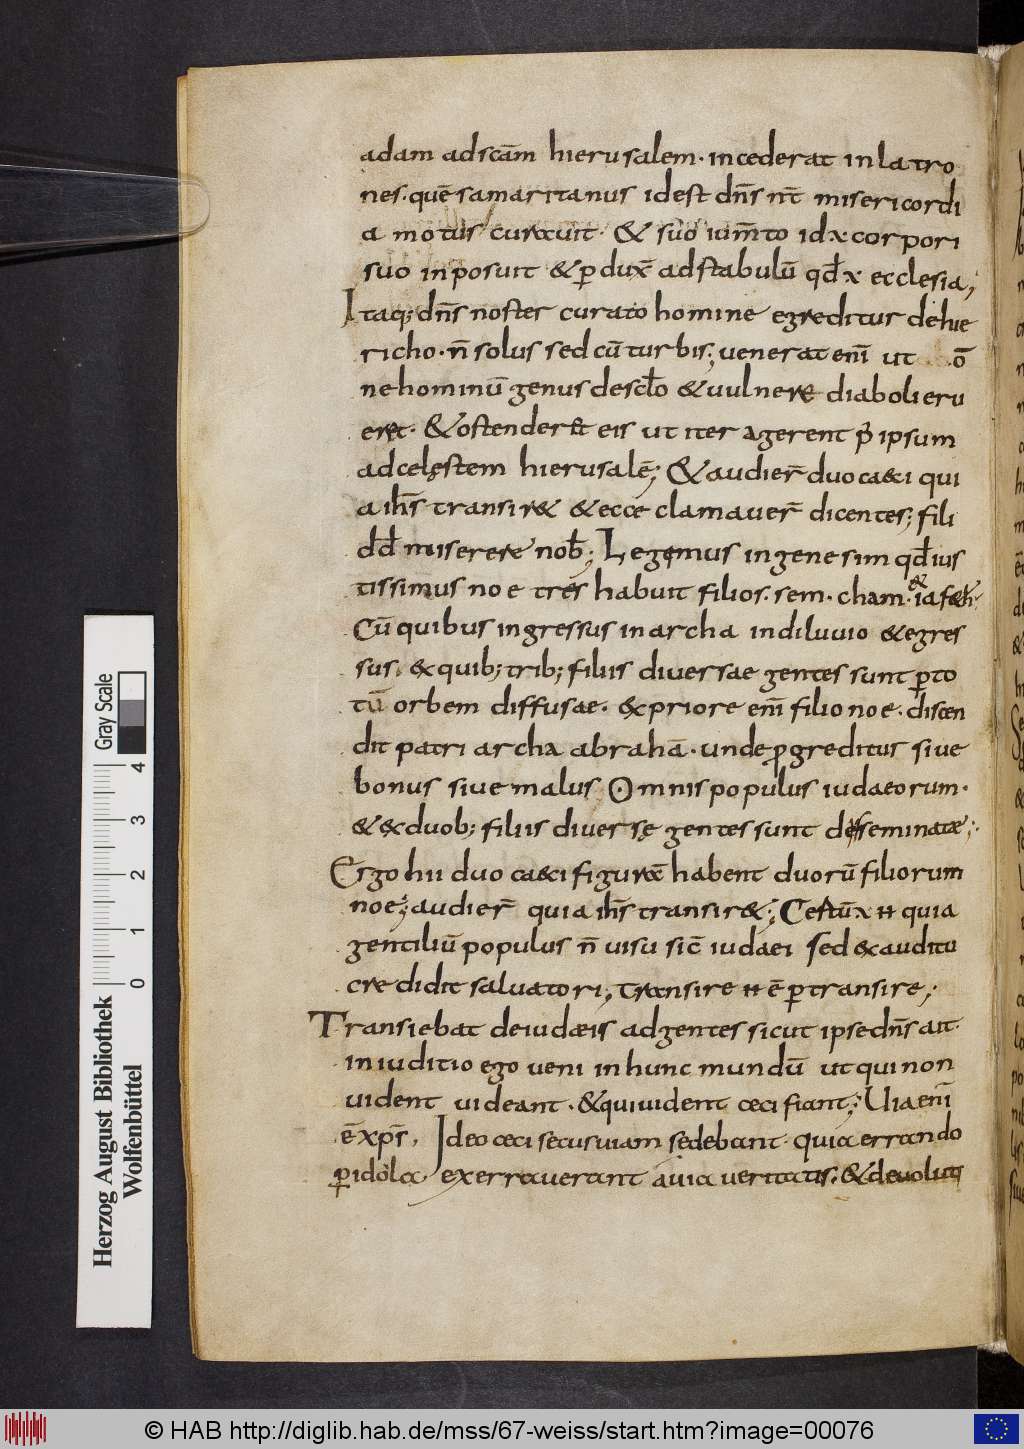 adam adscām hierusalem· incederat in latro
nes· quē samaritanus id est dn̄s nr̄t misericordi
a motus curauit· & suo ium̄to id x corpori
suo inposuit & p̱dux̄ ad stabulū qd̄ x ecclesia;
Itaq; dn̄s noster curato homine egreditur de hie
richo· n̄ solus sed cū turbis; uenerat eni̅ ut ō
ne hominū genus de sc̄lo & uulnere diaboli eru
eret· & ostenderet eis ut iter agerent p̄ ipsum
ad celęstem hierusalē; & audier̄ duo caeci qui
a ih̄s transir& & ecce clamauer̄ dicentes; fili
dd̄ miserere nob̄; Legemus in genesim qd̄ ius
tissimus noe tres habuit filios· sem· cham· & iaf&h·
Cū quibus ingressus in archa in diluuio & egres
sus· ex quib; trib; filiis diuersae gentes sunt p̱ to
tū orbem diffusae· ex priore eni̅ filio noe· discen
dit patriarcha abrahā· unde ꝓgreditus siue
bonus siue malus Omnis populus iudaeorum·
& ex duob; filiis diuersę gentes sunt desseminatae;
Ergo hii duo caeci figurā habent duorū filiorum
noe; audier̄ quia ih̄s transir&; Cestū x n quia
gentiliū populus n̄ uisu sic̄ iudaei sed ex auditu
credidit saluatori; transire n ē p̱transire;
Transiebat de iudaeis ad gentes sicut ipse dn̄s ait·
in iuditio ego ueni in hunc mundū ut qui non
uident uideant· & qui uident ceci fiant; Uia eni̅
ē xp̄s· Ideo ceci secus uiam sedebant· quia errando
p̱ idola exerrauerant a uia ueritatis· & deuoluti
Herzog August Bibliothek
Wolfenbüttel
Gray Scale
0 1 2 3 4
© HAB http://diglib.hab.de/mss/67-weiss/start.htm?image=00076